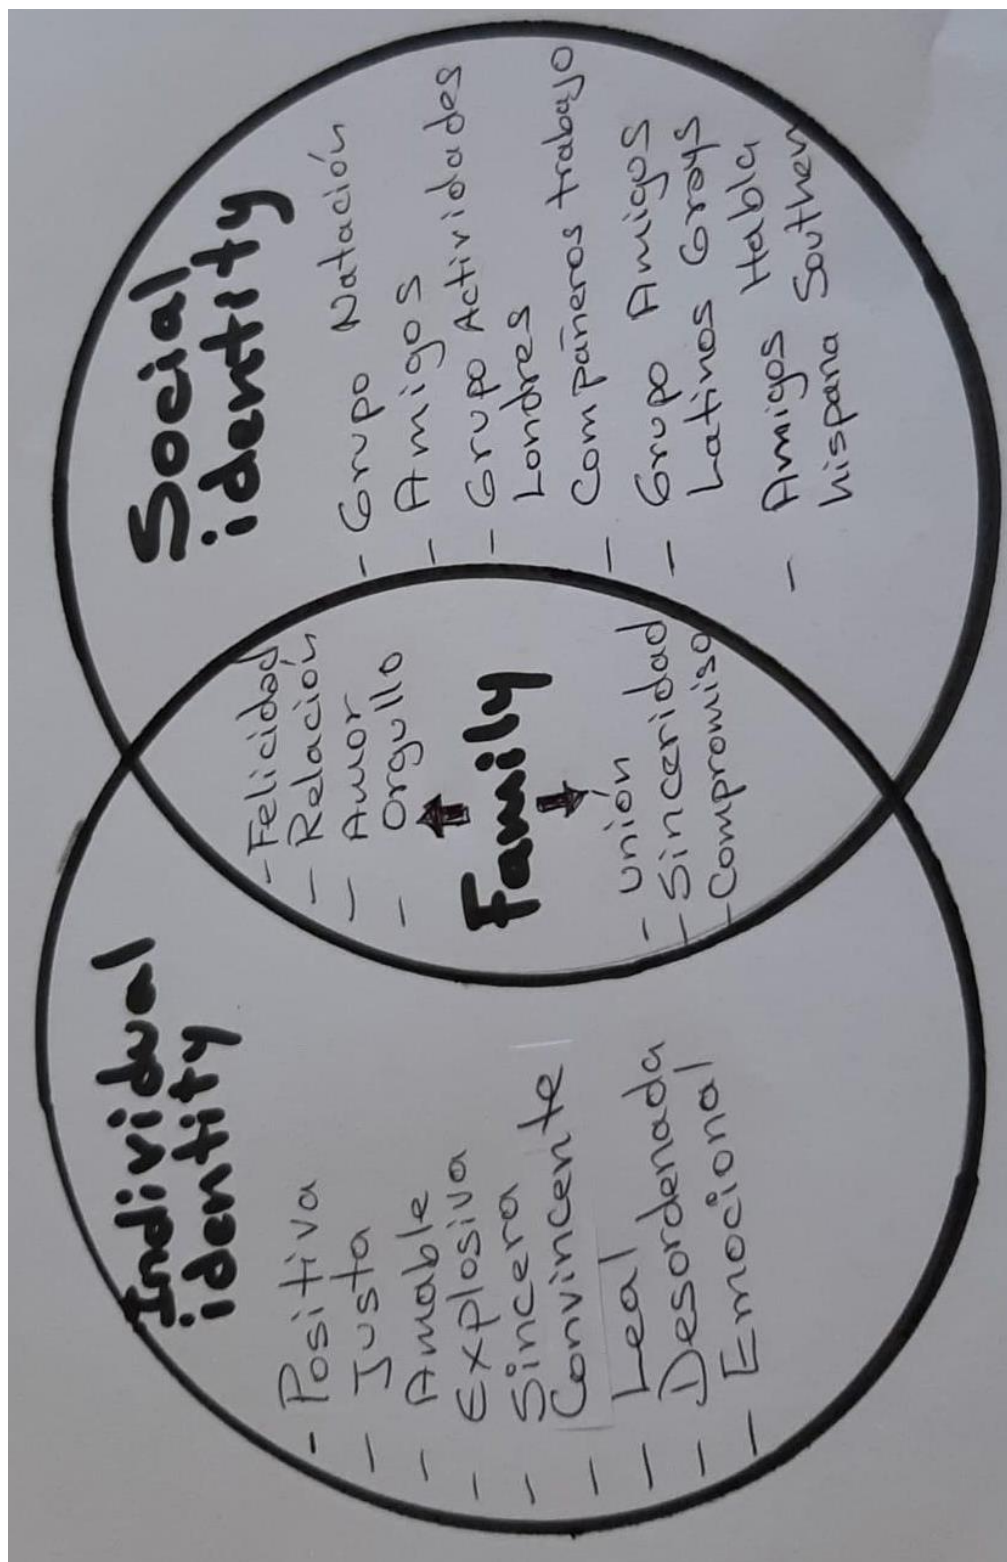 Individual
identity
- Positiva
- Justa
- Amable
- Explosiva
- Sincera
- Convincente
- Leal
- Desordenada
- Emocional
- Felicidad
- Relación
- Amor
- orgullo
Family
- unión
- Sinceridad
- Compromiso
Social
identity
- Grupo Natación
- Amigos
- Grupo Actividades
Londres
- Compañeros trabajo
- Grupo Amigos
Latinos Grays
- Amigos Habla
hispana Southen